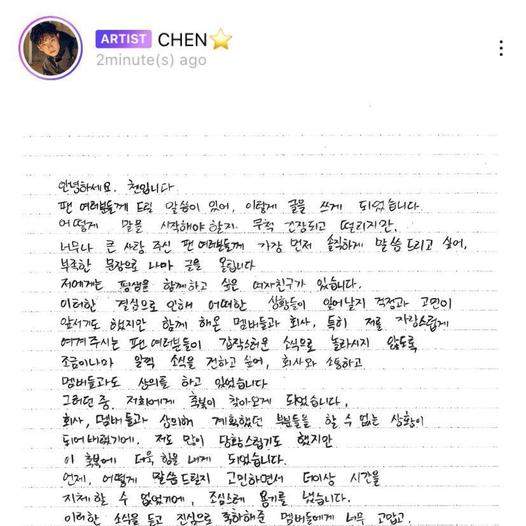 ARTIST CHEN⭐
2minute(s) ago
안녕하세요. 첸입니다
팬 여러분들께 드릴 말씀이 있어, 이렇게 글을 쓰게 되었습니다.
어떻게 말을 시작해야 할지 무척 긴장되고 떨리지만,
너무나 큰 사랑 주신 팬 여러분들께 가장 먼저 솔직하게 말씀 드리고 싶어,
부족한 문장으로 나마 글을 올립니다
저에게는 평생을 함께하고 싶은 여자친구가 있습니다.
이러한 결심으로 인해 어떠한 상황들이 일어날지 걱정과 고민이
앞서기도 했지만 함께 해온 멤버들과 회사, 특히 저를 자랑스럽게
여겨주시는 팬 여러분들이 갑작스러운 소식으로 놀라시지 않도록
조금이나마 일찍 소식을 전하고 싶어, 회사와 소통하고
멤버들과도 상의를 하고 있었습니다
그러던 중, 저희에게 축복이 찾아오게 되었습니다.
회사, 멤버들과 상의해 계획했던 부분들을 할 수 없는 상황이
되어버렸기에, 저도 많이 당황스럽기도 했지만
이 축복에 더욱 힘을 내게 되었습니다.
언제, 어떻게 말씀 드릴지 고민하면서 더이상 시간을
지체할 수 없었기에, 조심스레 용기를 냈습니다.
이러한 소식을 듣고 진심으로 축하해준 멤버들에게 너무 고맙고,